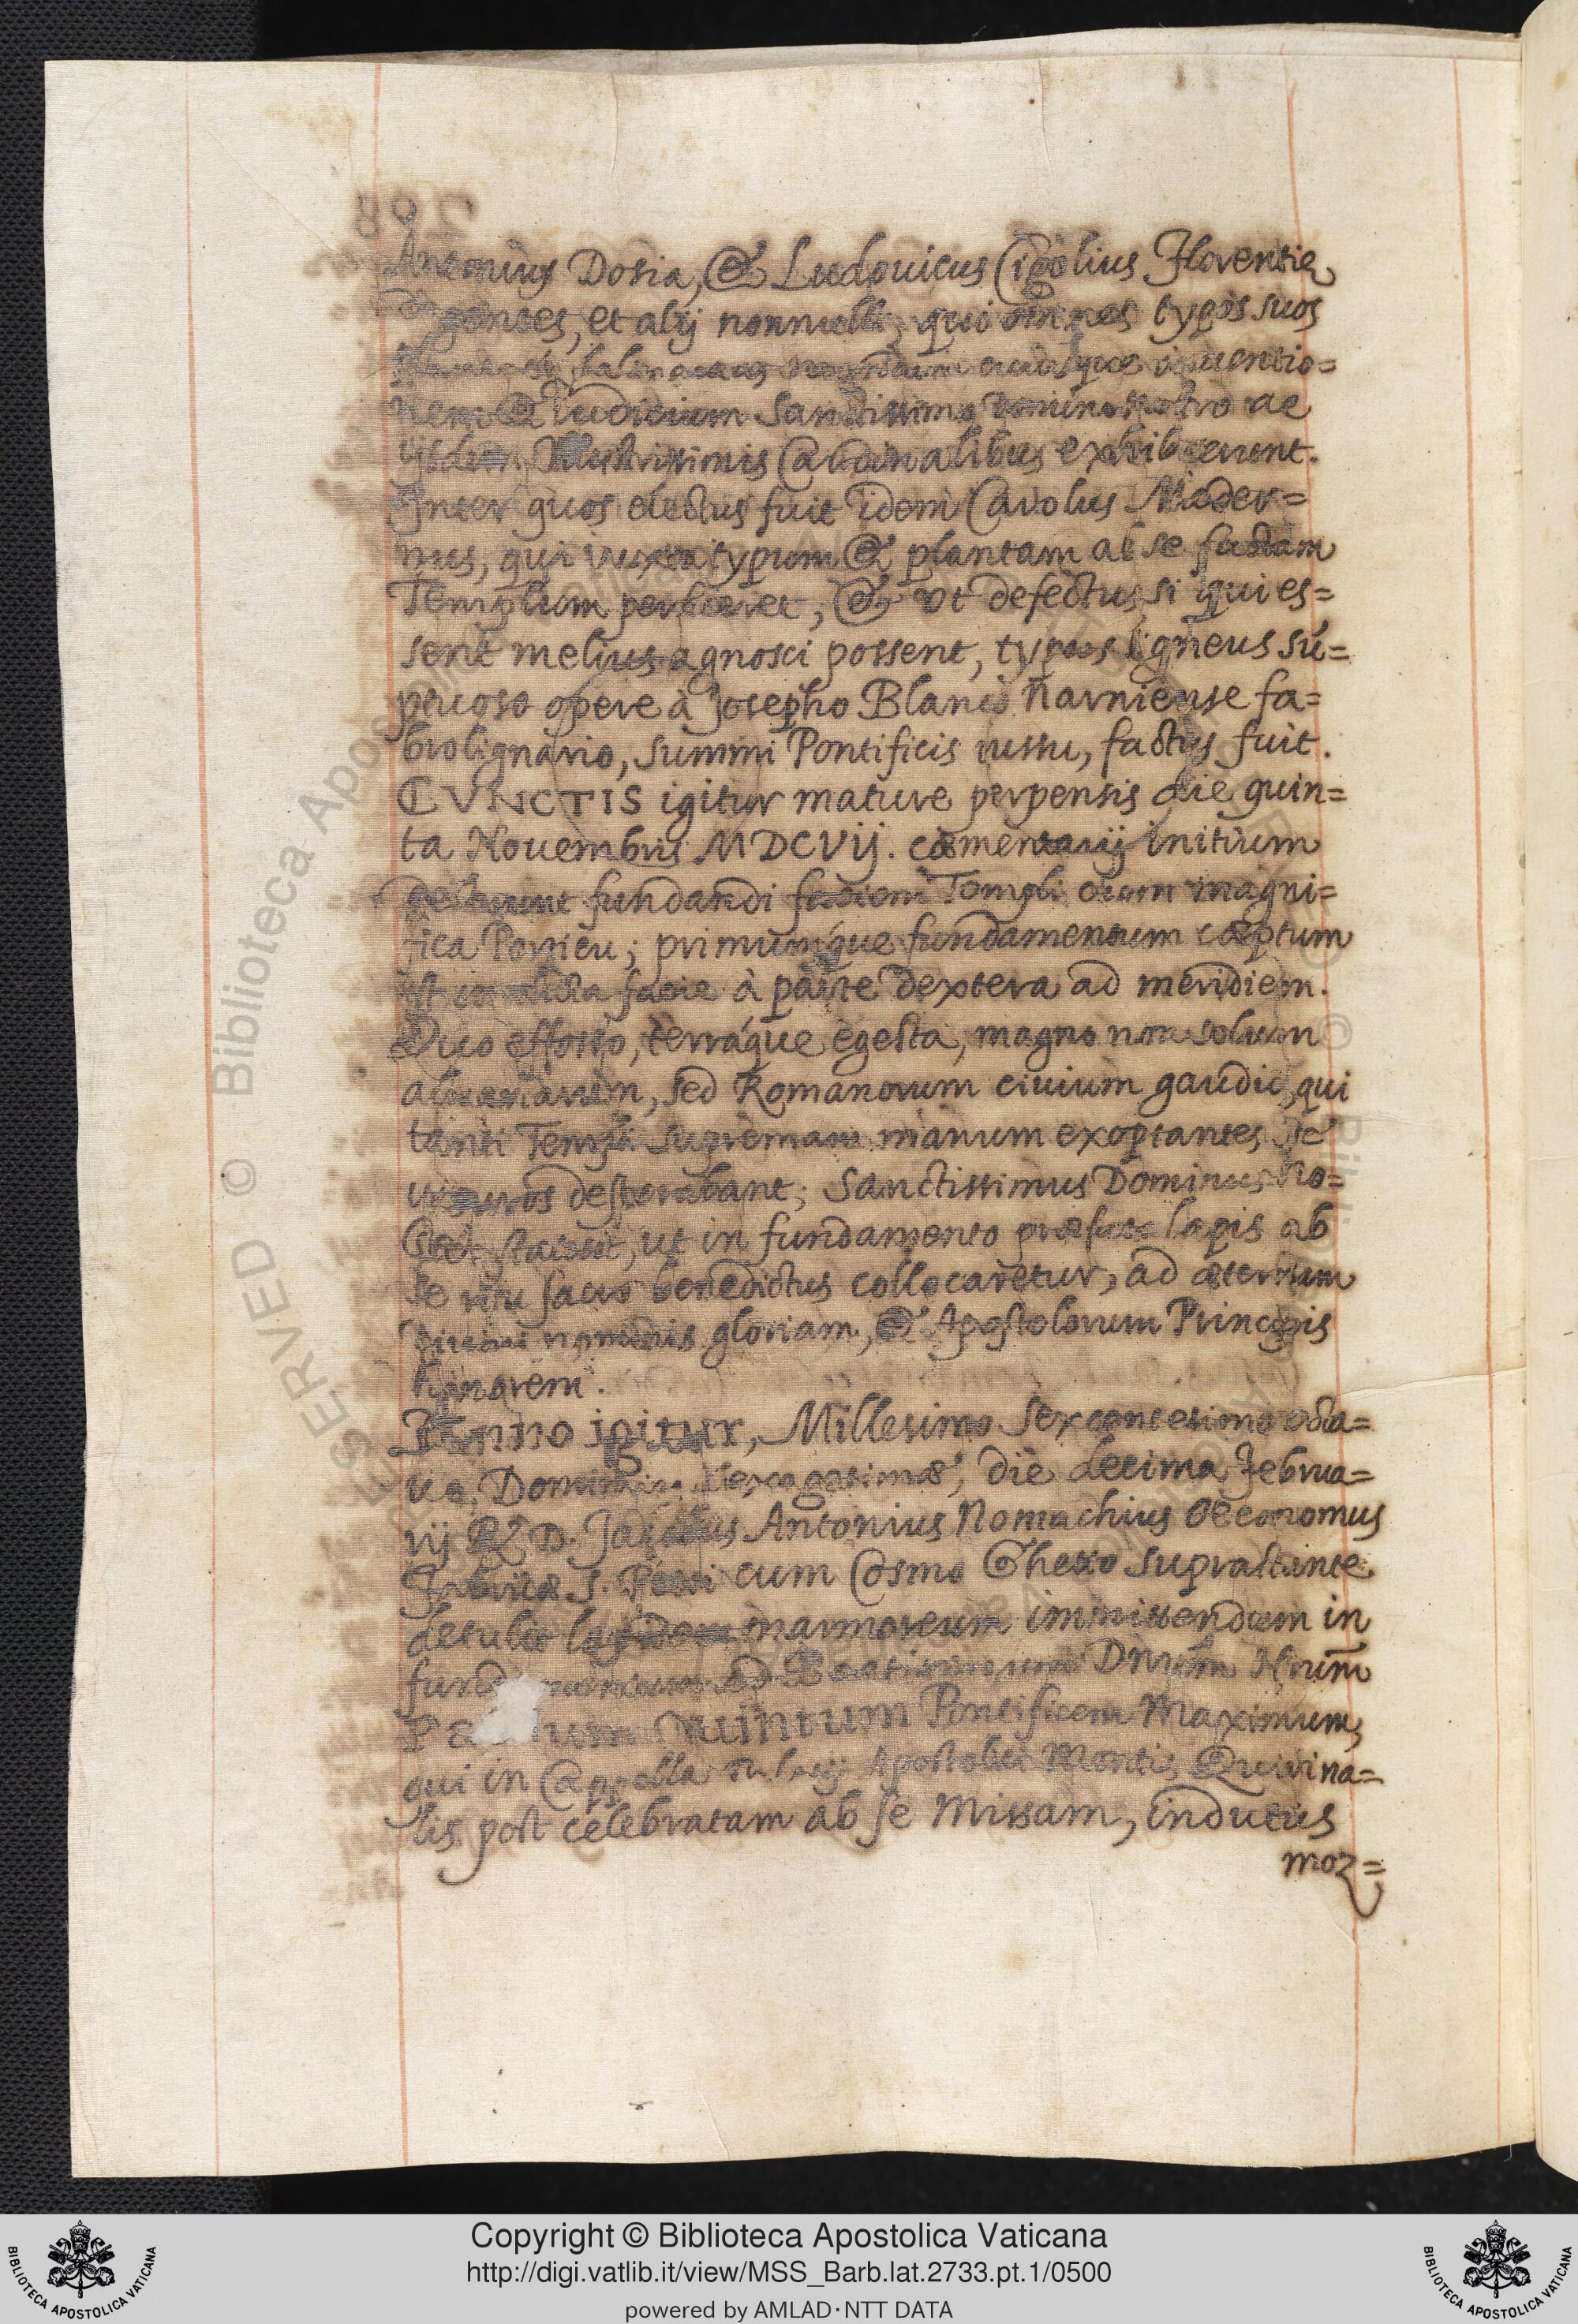 Antonius Dosia, & Ludouicus Cigolius Florentiæ
degentes, et alij nonnulli, qui omnes typos suos
inuentio=
nem & Iudicium Sanctissimo Domino Nostro ac
ijsdem Illustrissimis Cardinalibus exhibuerunt.
Inter quos electus fuit idem Carolus Mader=
nus, qui iuxta typum & plantam ab se factam
Templum perficeret, & vt defectus, si qui es=
sent melius agnosci possent, typus ligneus sū=
ptuoso opere à Josepho Blanco Narniense fa=
brolignario, Summi Pontificis iussu, factus fuit.
CVNCTIS igitur mature perpensis die quin=
ta Nouembris MDCVij. cæmentarij initium
dederunt fundandi faciem Templi cum magni=
fica Porticu; primumque fundamentum cœptum
est in dicta facie à parte dextera ad meridiem.
Quo effosso, terráque egesta, magno non solum
sed Romanorum ciuium gaudio, qui
tanti Templi supremam manum exoptantes se
visuros desperabant; Sanctissimus Dominus No=
ster statuit, ut in fundamento præfato lapis ab
se ritu sacro benedictus collocaretur, ad æternam
Diuini nominis gloriam, & Apostolorum Principis
honorem.
Anno igitur, Millesimo Sexcentesimo octa=
uo, Dominica Sexagesimæ, die decima Februa=
rij R. D. Jacobus Antonius Nomachius Oeconomus
Fabricæ S. Petri cum Cosmo Thexo suprastante
detulit lapidem marmoreum immittendum in
fundamentum ad Beatissimum Dnūm Nrūm
Paulum Quintum Pontificem Maximum,
qui in Cappella Palatij Apostolici Montis Quirina=
lis post celebratam ab se Missam, indutus
moz=
Copyright © Biblioteca Apostolica Vaticana
http://digi.vatlib.it/view/MSS_Barb.lat.2733.pt.1/0500
powered by AMLAD·NTT DATA
BIBLIOTECA APOSTOLICA VATICANA
BIBLIOTECA APOSTOLICA VATICANA